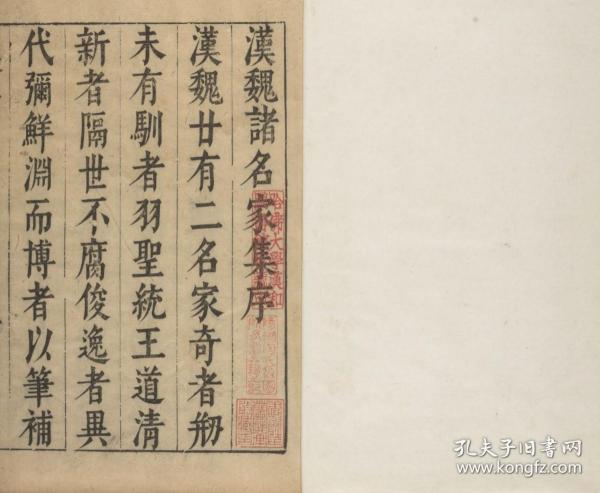 漢魏諸名家集序
漢魏廿有二名家奇者剏
未有馴者羽聖統王道清
新者隔世不腐俊逸者異
代彌鮮淵而博者以筆補
哈佛大學漢和
孔夫子旧书网
www.kongfz.com